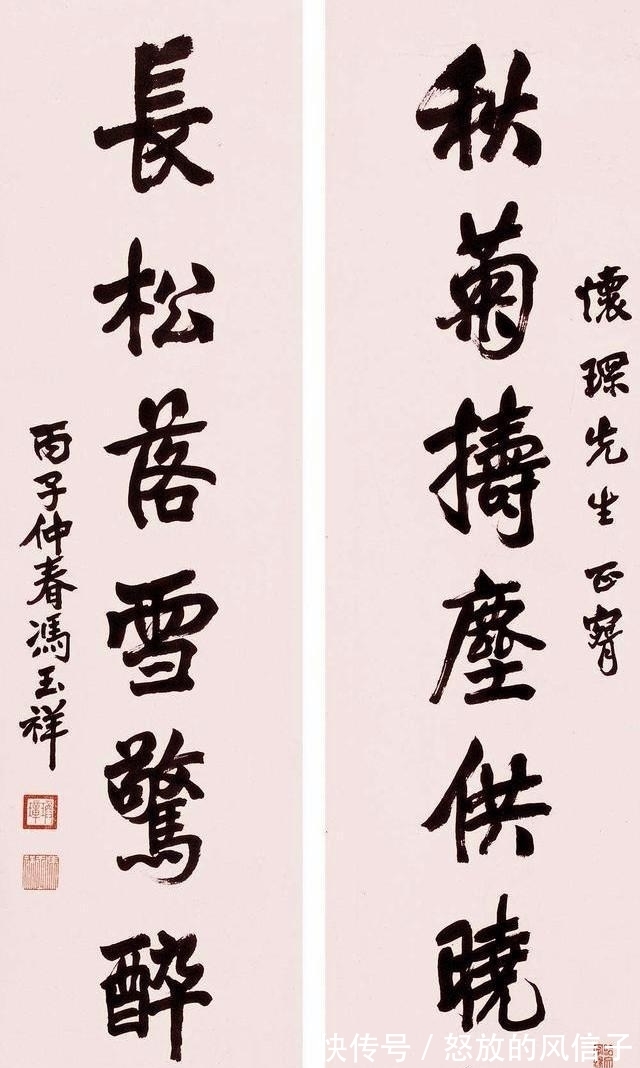 懷琛先生正
秋菊擣塵供曉
長松落雪驚醉
丙子仲春馮玉祥
快传号/怒放的风信子